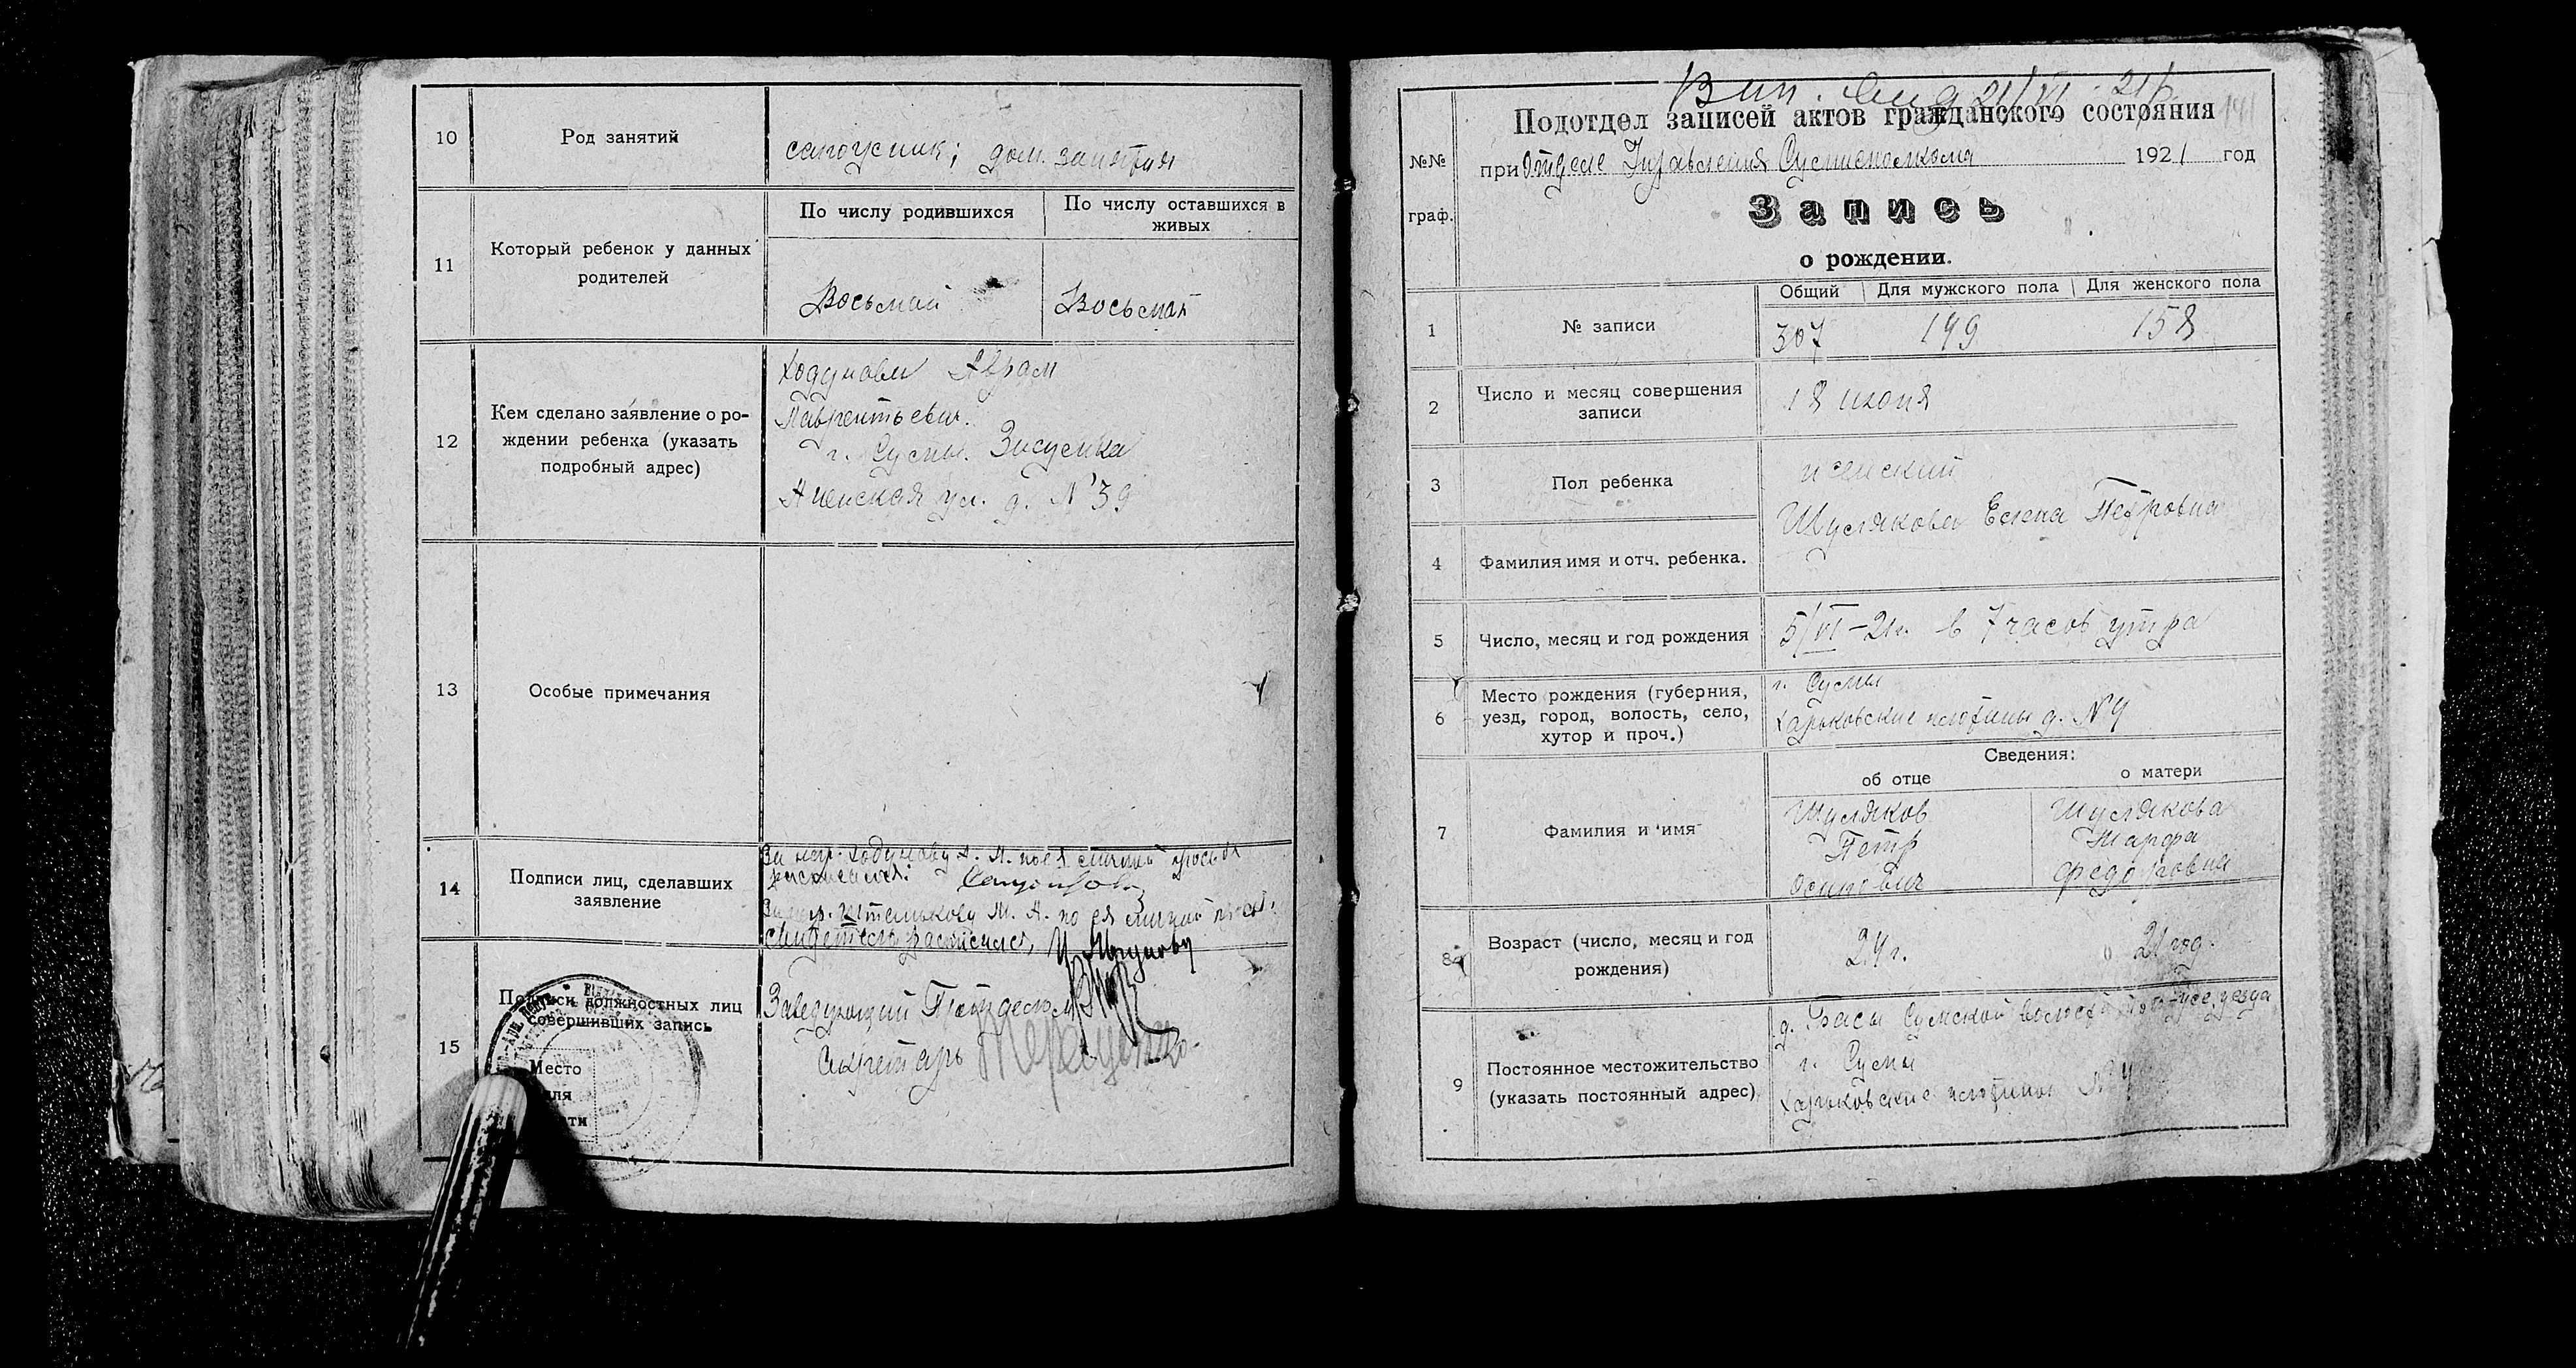 10
Род занятий
сапожник; дом. занятия
11
Который ребенок у данных
родителей
По числу родившихся
По числу оставшихся в
живых
Восьмой
Восьмой
12
Кем сделано заявление о ро-
ждении ребенка (указать
подробный адрес)
Ходунова Аврам
Лаврентьевич.
г. Сумы. Засумка
ул. д. № 39
13
Особые примечания
14
Подписи лиц, сделавших
заявление
За негр. Ходунову А. Л. по ея личной просьбе
расписался:
М. А. по ея личной прось.
расписался,
15
Подписи должностных лиц
совершивших запись
Место
для
Заведующий Подотделом
Секретарь
№№
граф.
Подотдел записей актов гражданского состояния
при Отделе Управления Сумисполкома 1921 год
Запись
о рождении.
1
№ записи
Общий
Для мужского пола
Для женского пола
307
149
158
2
Число и месяц совершения
записи
18 июня
3
Пол ребенка
женский
4
Фамилия имя и отч. ребенка.
Шулякова Елена Петровна
5
Число, месяц и год рождения
5/VI–21г. в 7 часов утра
6
Место рождения (губерния,
уезд, город, волость, село,
хутор и проч.)
г. Сумы
Харьковские плотины д. № 4
7
Фамилия и имя
Сведения:
об отце
о матери
Шуляков
Петр
Осипович
Шулякова
Марфа
Федоровна
8
Возраст (число, месяц и год
рождения)
24 г.
21 год.
9
Постоянное местожительство
(указать постоянный адрес)
д. Басы Сумской волости уезда
г. Сумы
Харьковские плотины № 4